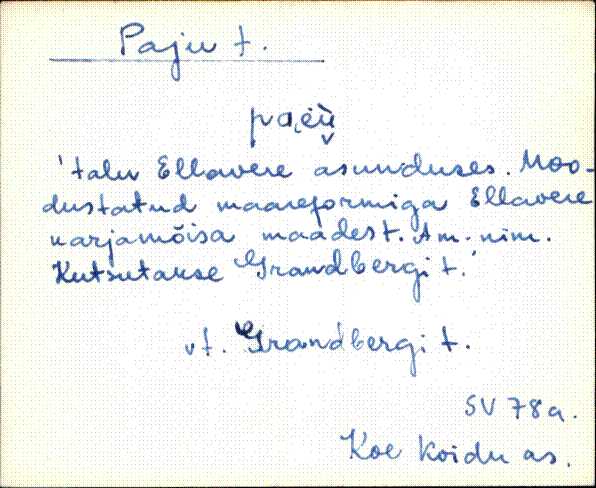 Paju t.
pa͔èu̬̇
'talu Ellavere asunduses. Moo-
dustatud maareformiga Ellavere
karjamõisa maadest. Am. nim.
Kutsutakse Grandbergi t.'
vt. Grandbergi t.
SV 78a.
Koe Koidu as.